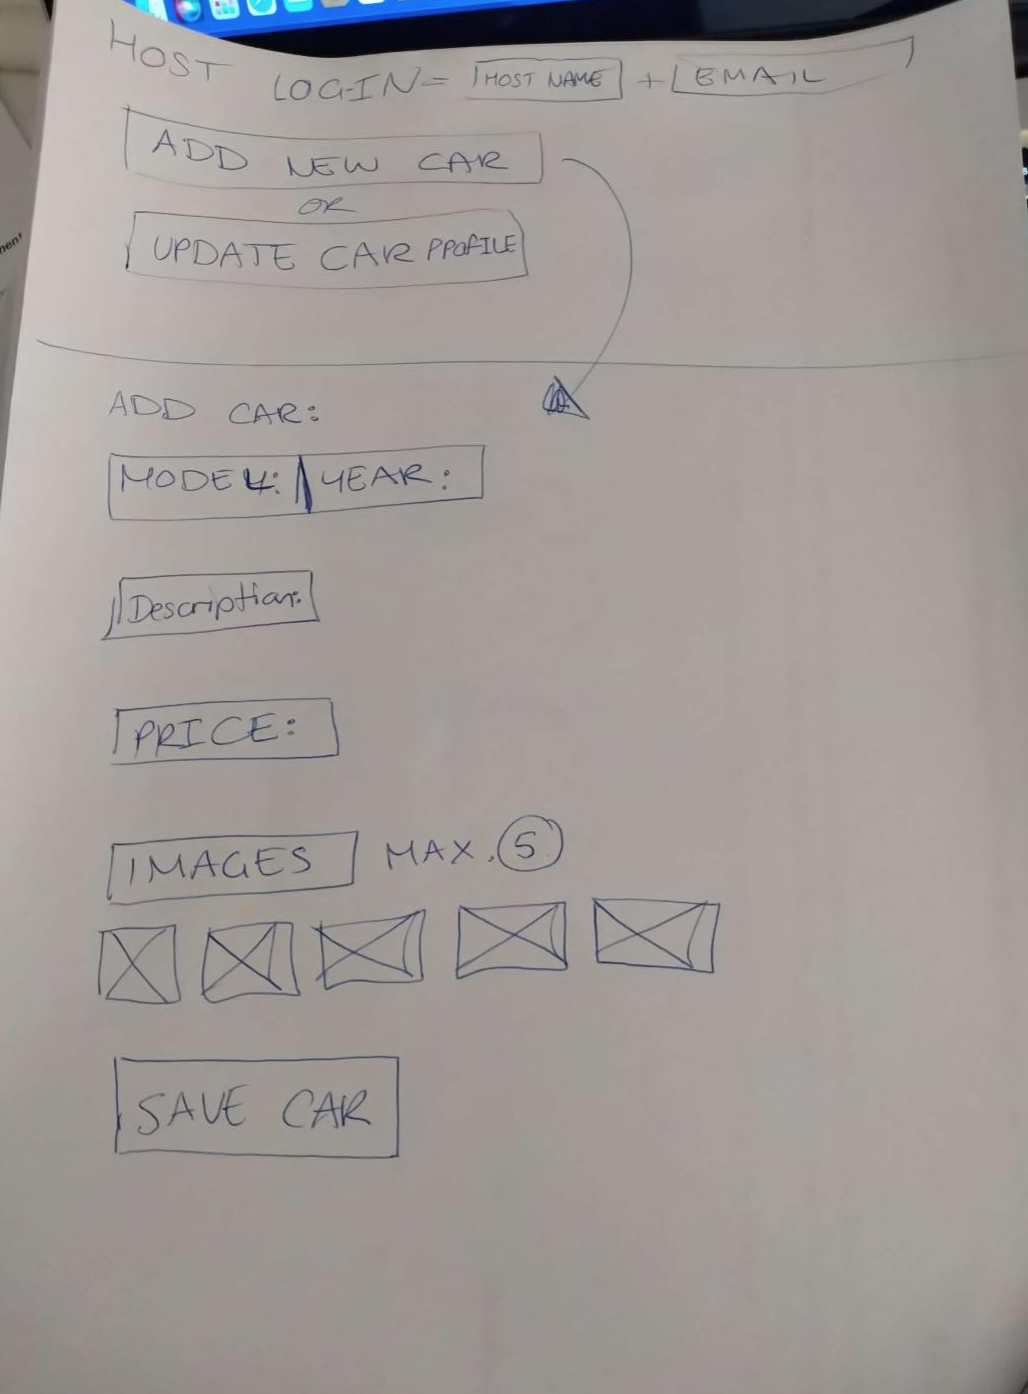 HOST
LOG-IN = HOST NAME + EMAIL
ADD NEW CAR
OR
UPDATE CAR PROFILE
ADD CAR:
MODEL: YEAR:
Description:
PRICE:
IMAGES MAX. 5
SAVE CAR